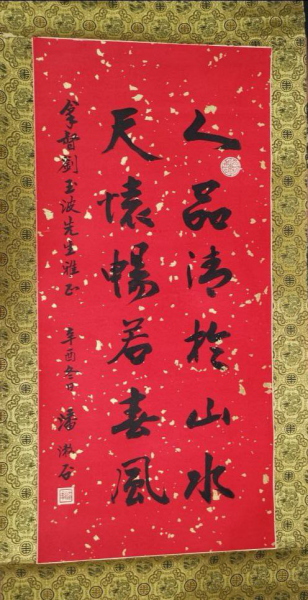 人品清於山水
天懷暢若春風
拿督劉玉波先生雅正
辛酉冬日 潘漱石